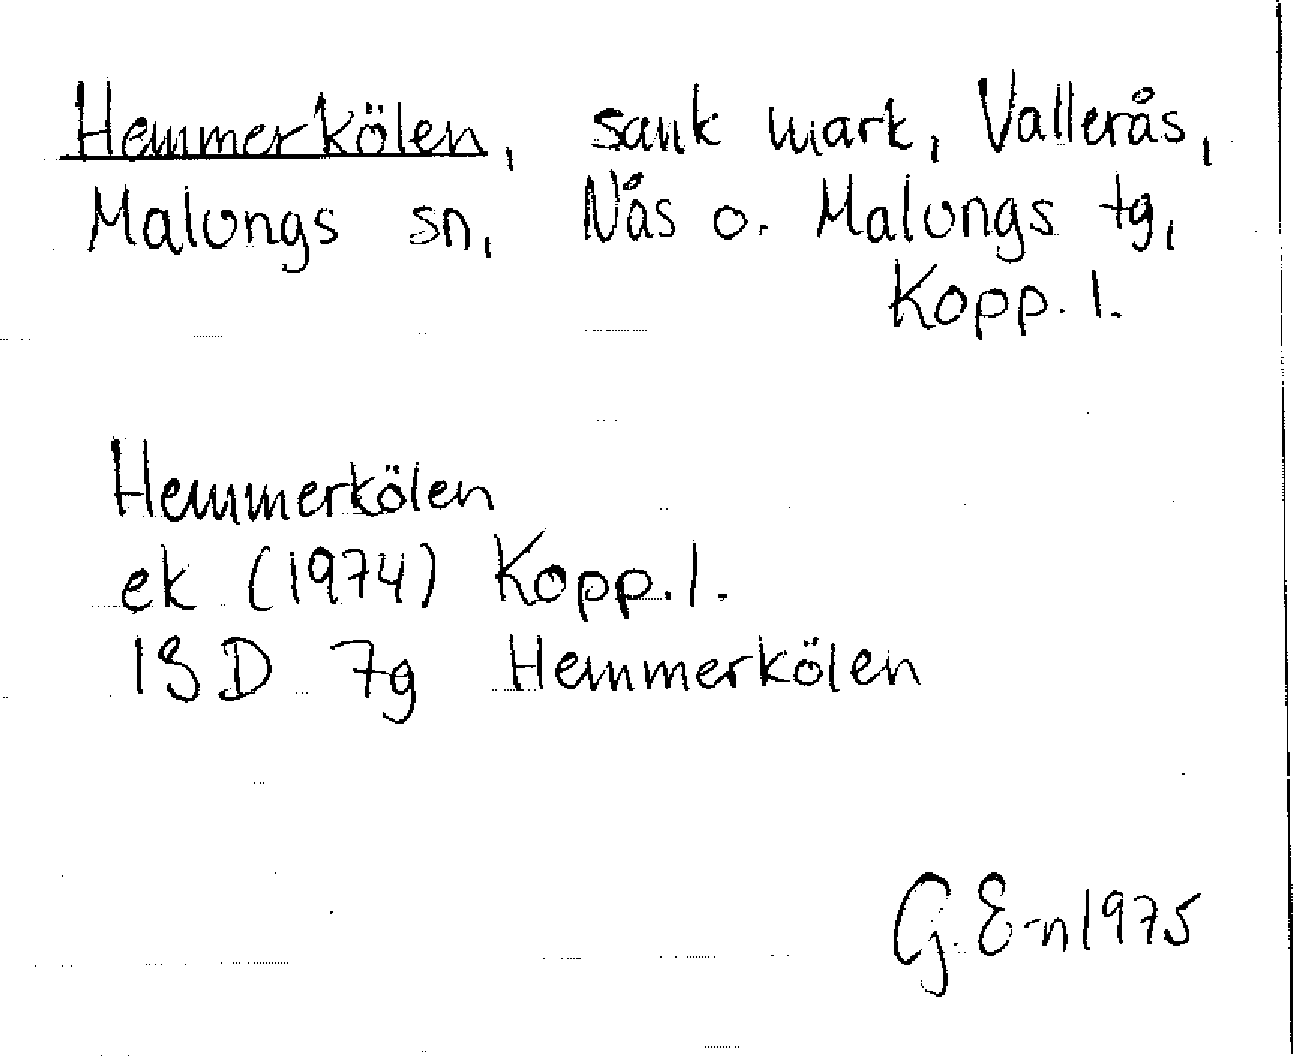 Hemmerkölen, sank mark, Vallerås,
Malungs sn, Nås o. Malungs tg,
Kopp. l.
Hemmerkölen
ek (1974) Kopp. l.
13D 7g Hemmerkölen
G. E-n 1975